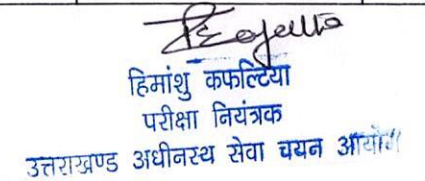 हिमांशु कफल्टिया
परीक्षा नियंत्रक
उत्तराखण्ड अधीनस्थ सेवा चयन आयोग